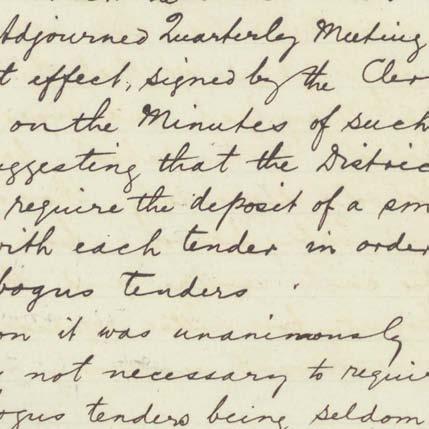 Adjourned Quarterly Meeting
t effect, signed by the Cler
on the Minutes of such
uggesting that the Distric
require the deposit of a sm
with each tender in order
bogus tenders.
on it was unanimously
not necessary to requir
ogus tenders being seldom